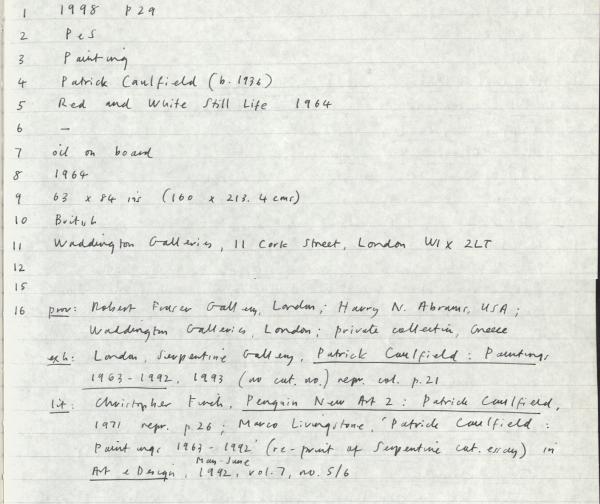 1 1998 P29
2 PeS
3 Painting
4 Patrick Caulfield (b. 1936)
5 Red and White Still Life 1964
6 —
7 oil on board
8 1964
9 63 x 84 ins (160 x 213.4 cms)
10 British
11 Waddington Galleries, 11 Cork Street, London W1X 2LT
12
15
16 prov: Robert Fraser Gallery, London; Harry N. Abrams, USA;
Waddington Galleries, London; private collection, Greece
exh: London, Serpentine Gallery, Patrick Caulfield: Paintings
1963-1992, 1993 (no cat. no.) repr. col. p.21
lit: Christopher Finch, Penguin New Art 2: Patrick Caulfield,
1971 repr. p.26; Marco Livingstone, 'Patrick Caulfield:
Paintings 1963-1992' (re-print of Serpentine cat. essay) in
May-June
Art & Design, 1992, vol.7, no. 5/6